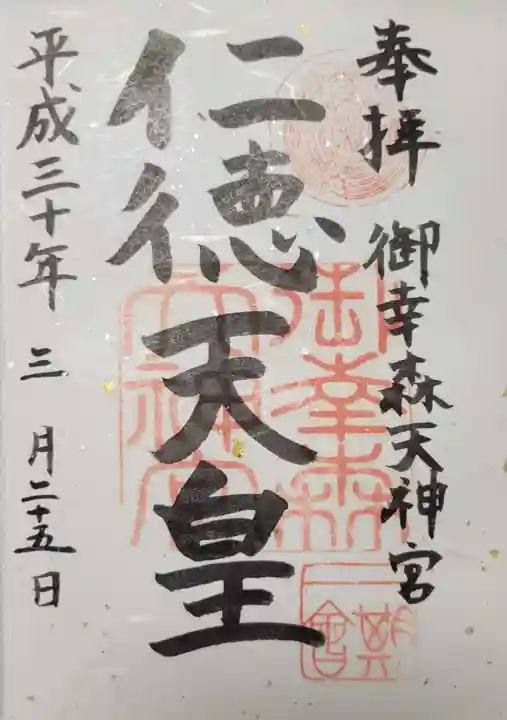 奉拝 御幸森天神宮
仁徳天皇
平成三十年 三月二十五日
御幸森
天神宮
一期
一會